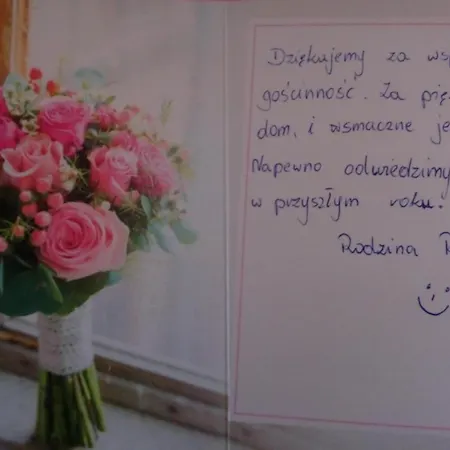 Dziękujemy za wsp
gościnność. Za pię
dom, i wsmaczne je
Napewno odwiedzimy
w przyszłym roku.
Rodzina